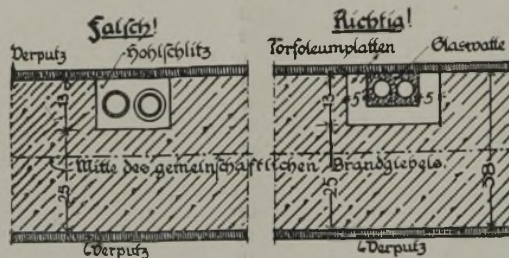 Falsch!
Richtig!
Verputz
Hohlschlitz
Torfoleumplatten
Glaswatte
13
13
5
5
Mitte des gemeinschaftlichen Brandgiebels.
25
25
38
Verputz
Verputz